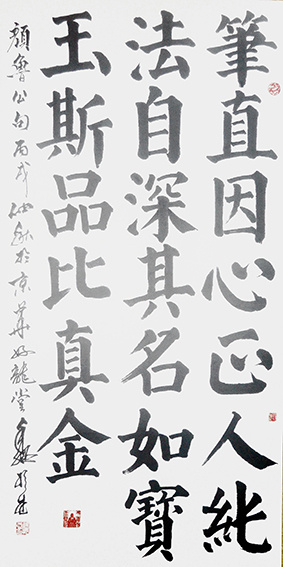 筆直因心正人純
法自深其名如寶
玉斯品比真金
顏魯公句丙戌於京華好龍堂